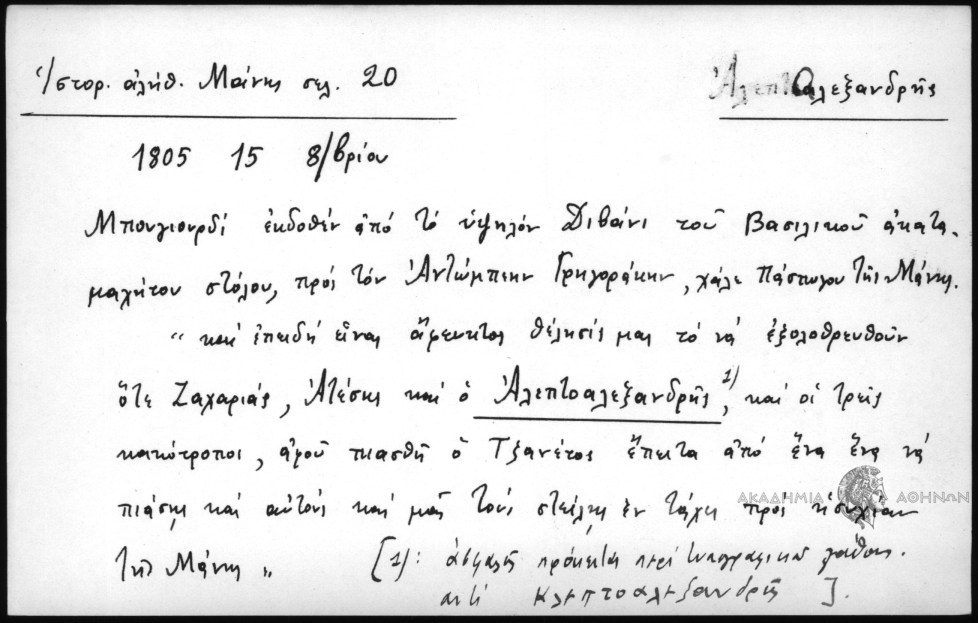 Ἱστορ. ἀλήθ. Μάνης σελ. 20
Ἀλεπτοαλεξανδρῆς
1805 15 8/βρίου
Μπουγιουρδί ἐκδοθέν ἀπό τό ὑψηλόν Διβάνι τοῦ Βασιλικοῦ ἀκατα-
μαχήτου στόλου, πρός τόν Ἀντώμπεην Γρηγοράκην, χάλε Πάσπογου τῆς Μάνης.
" καί ἐπειδή εἶναι ἄφευκτος θέλησίς μας τό νά ἐξολοθρευθοῦν
ὅτε Ζαχαριάς, Ἀτέσης καί ὁ Ἀλεπτοαλεξανδρῆς 1), καί οἱ τρεῖς
κακότροποι, ἀφοῦ πιασθῆ ὁ Τζανέτος ἔπειτα ἀπό ἕνα ἕνα νά
πιάσης καί αὐτούς καί μᾶς τούς στείλης ἐν τάχει πρός ἡσυχίαν
τῆς Μάνης "
[1): ἀσφαλῶς πρόκειται περί τυπογραφικοῦ λάθους.
ἀντί Κλεπτοαλεξανδρῆς ].
ΑΚΑΔΗΜΙΑ ΑΘΗΝΩΝ